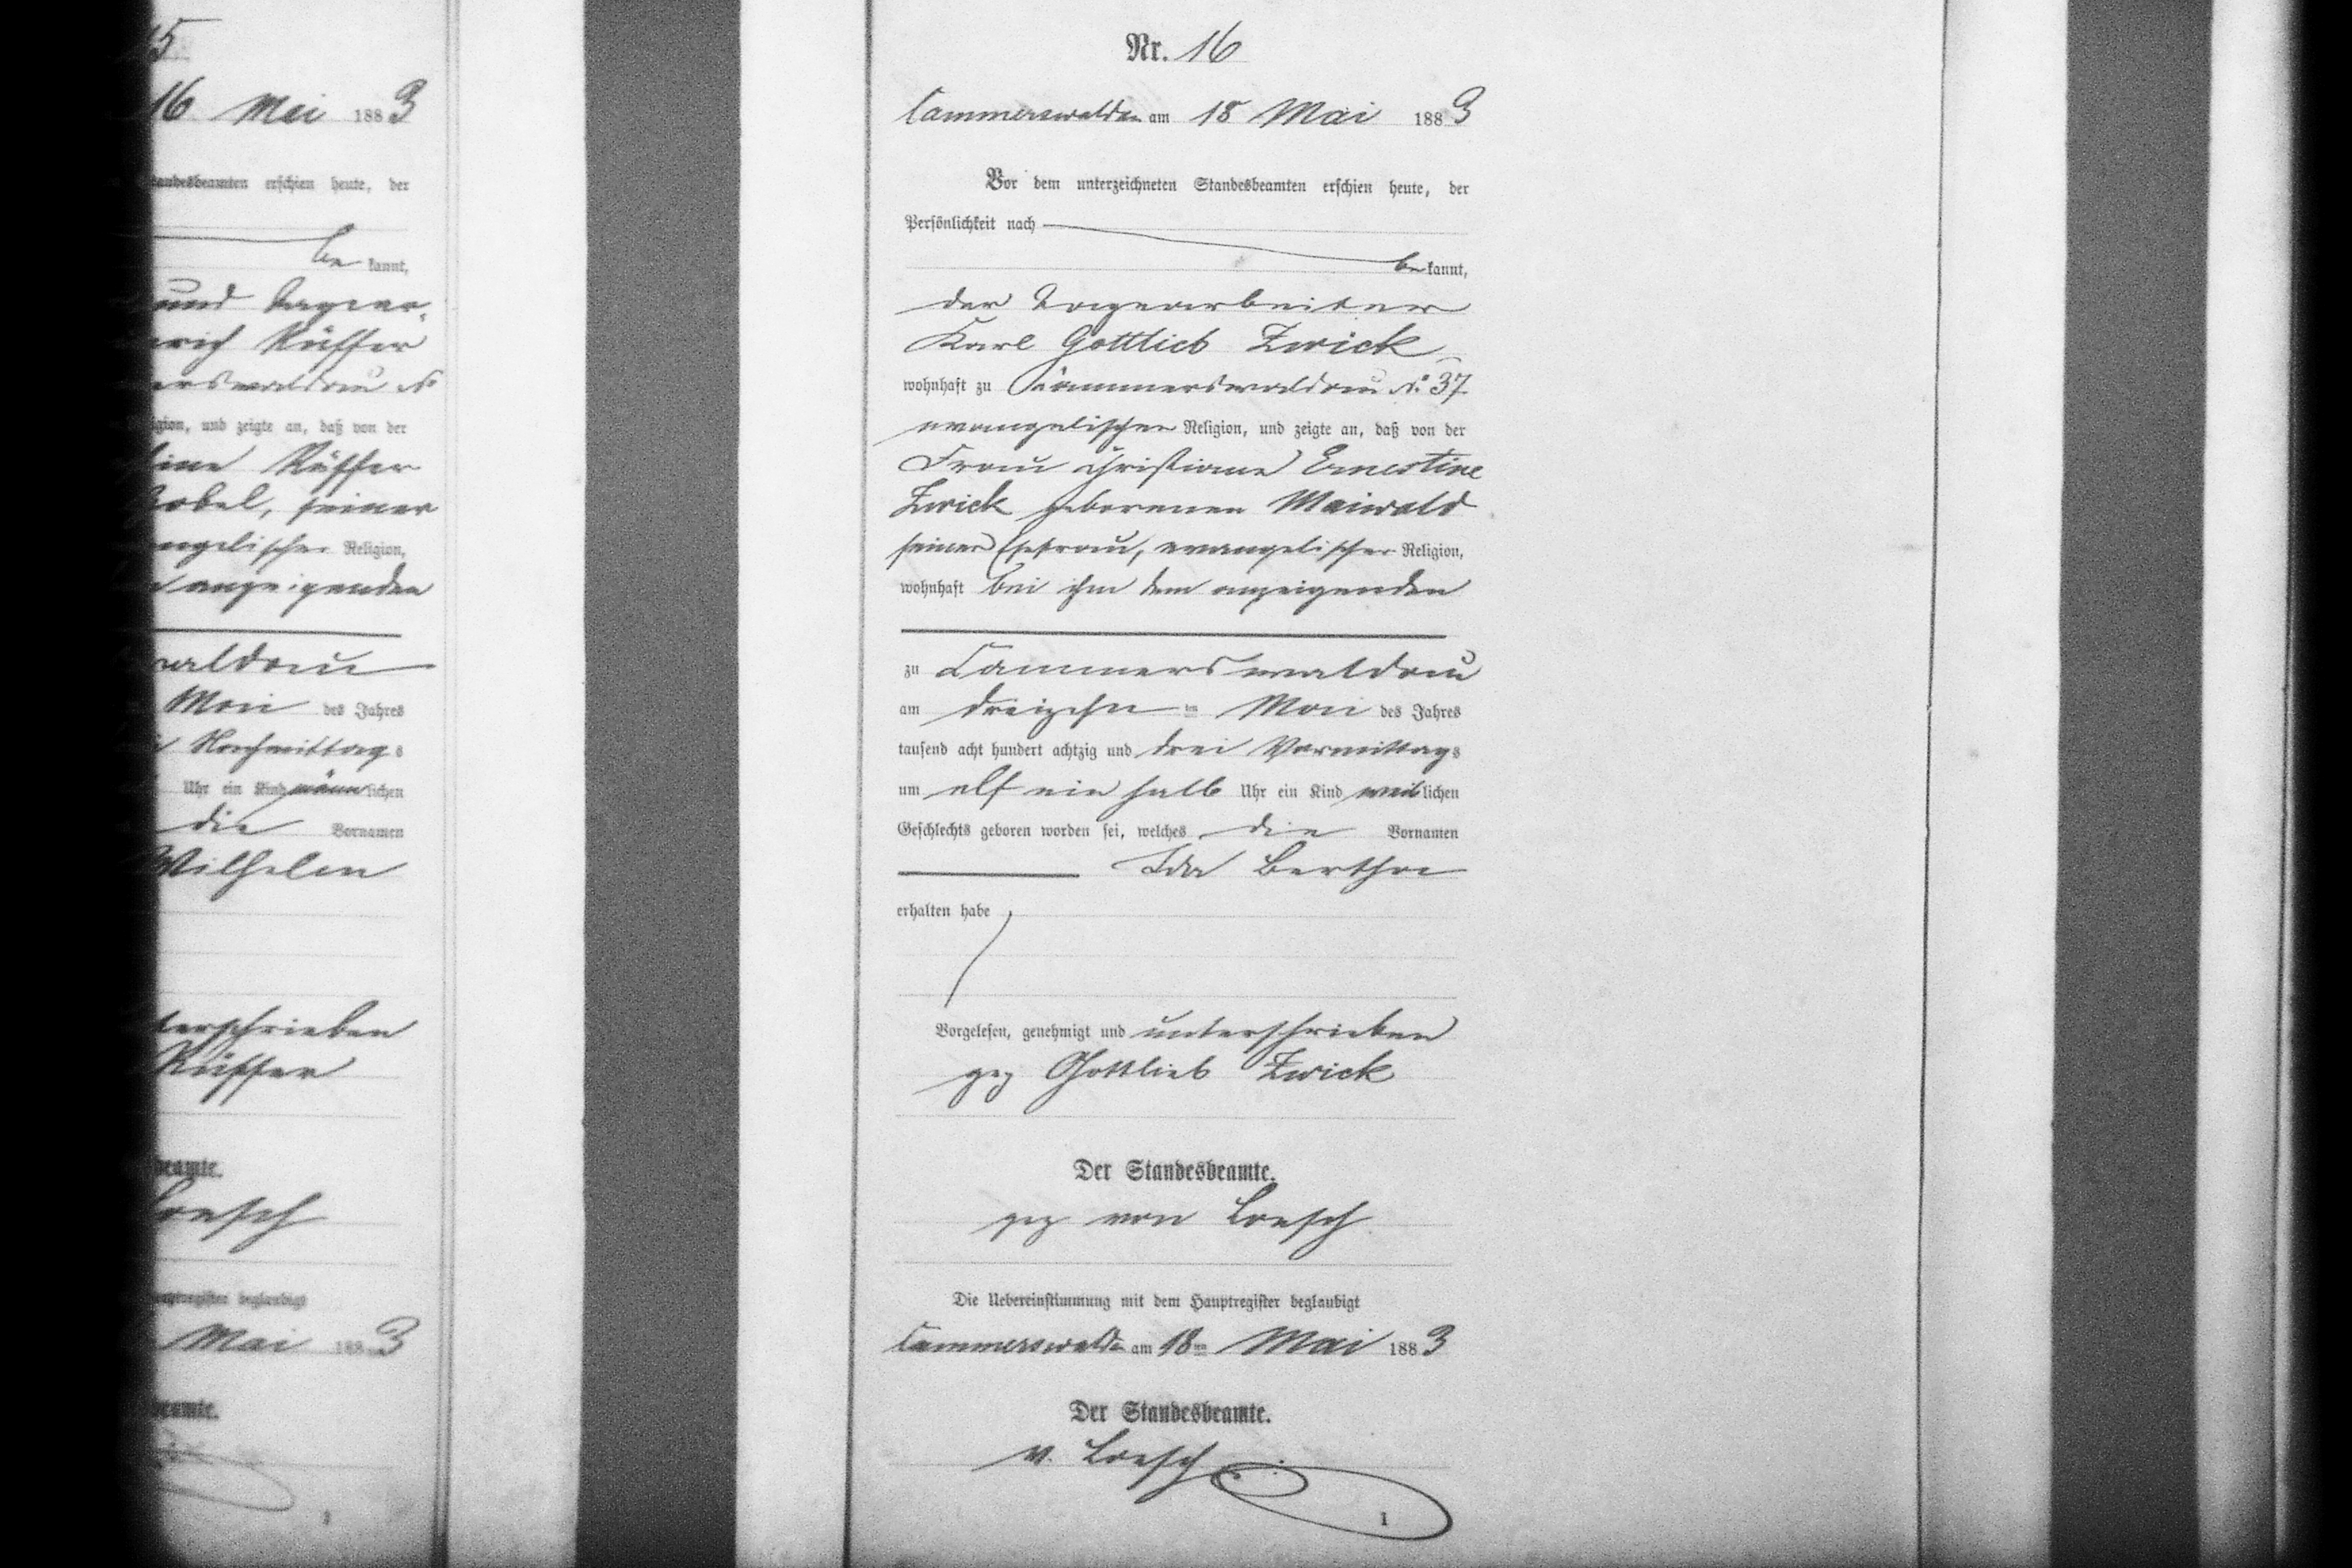 15
16 Mai 1883
Standesbeamten erschien heute, der
be kannt,
und Tagear-
Rüffer
No
und zeigte an, daß von der
Rüffer
seiner
Religion,
anzeigenden
waldau
Mai des Jahres
Nachmittags
Uhr ein Kind männlichen
die Vornamen
Wilhelm
unterschrieben
Rüffer
beamte.
Loesch
Hauptregister beglaubigt
Mai 1883
beamte.
1
Nr. 16
Cammerswaldau am 18 Mai 1883
Vor dem unterzeichneten Standesbeamten erschien heute, der
Persönlichkeit nach
be kannt,
der Tagearbeiter
Karl Gottlieb Zwick
wohnhaft zu Cammerswaldau No 37
evangelischer Religion, und zeigte an, daß von der
Frau Christiane Ernestine
Zwick geborenen Maiwald
seiner Ehefrau, evangelischer Religion,
wohnhaft bei ihm dem anzeigenden
zu Cammerswaldau
am dreizehn ten Mai des Jahres
tausend acht hundert achtzig und drei Vormittags
um elf ein halb Uhr ein Kind weiblichen
Geschlechts geboren worden sei, welches die Vornamen
Ida Bertha
erhalten habe
Vorgelesen, genehmigt und unterschrieben
gez Gottlieb Zwick
Der Standesbeamte.
gez von Loesch
Die Uebereinstimmung mit dem Hauptregister beglaubigt
Cammerswaldau am 18ten Mai 1883
Der Standesbeamte.
v. Loesch
1